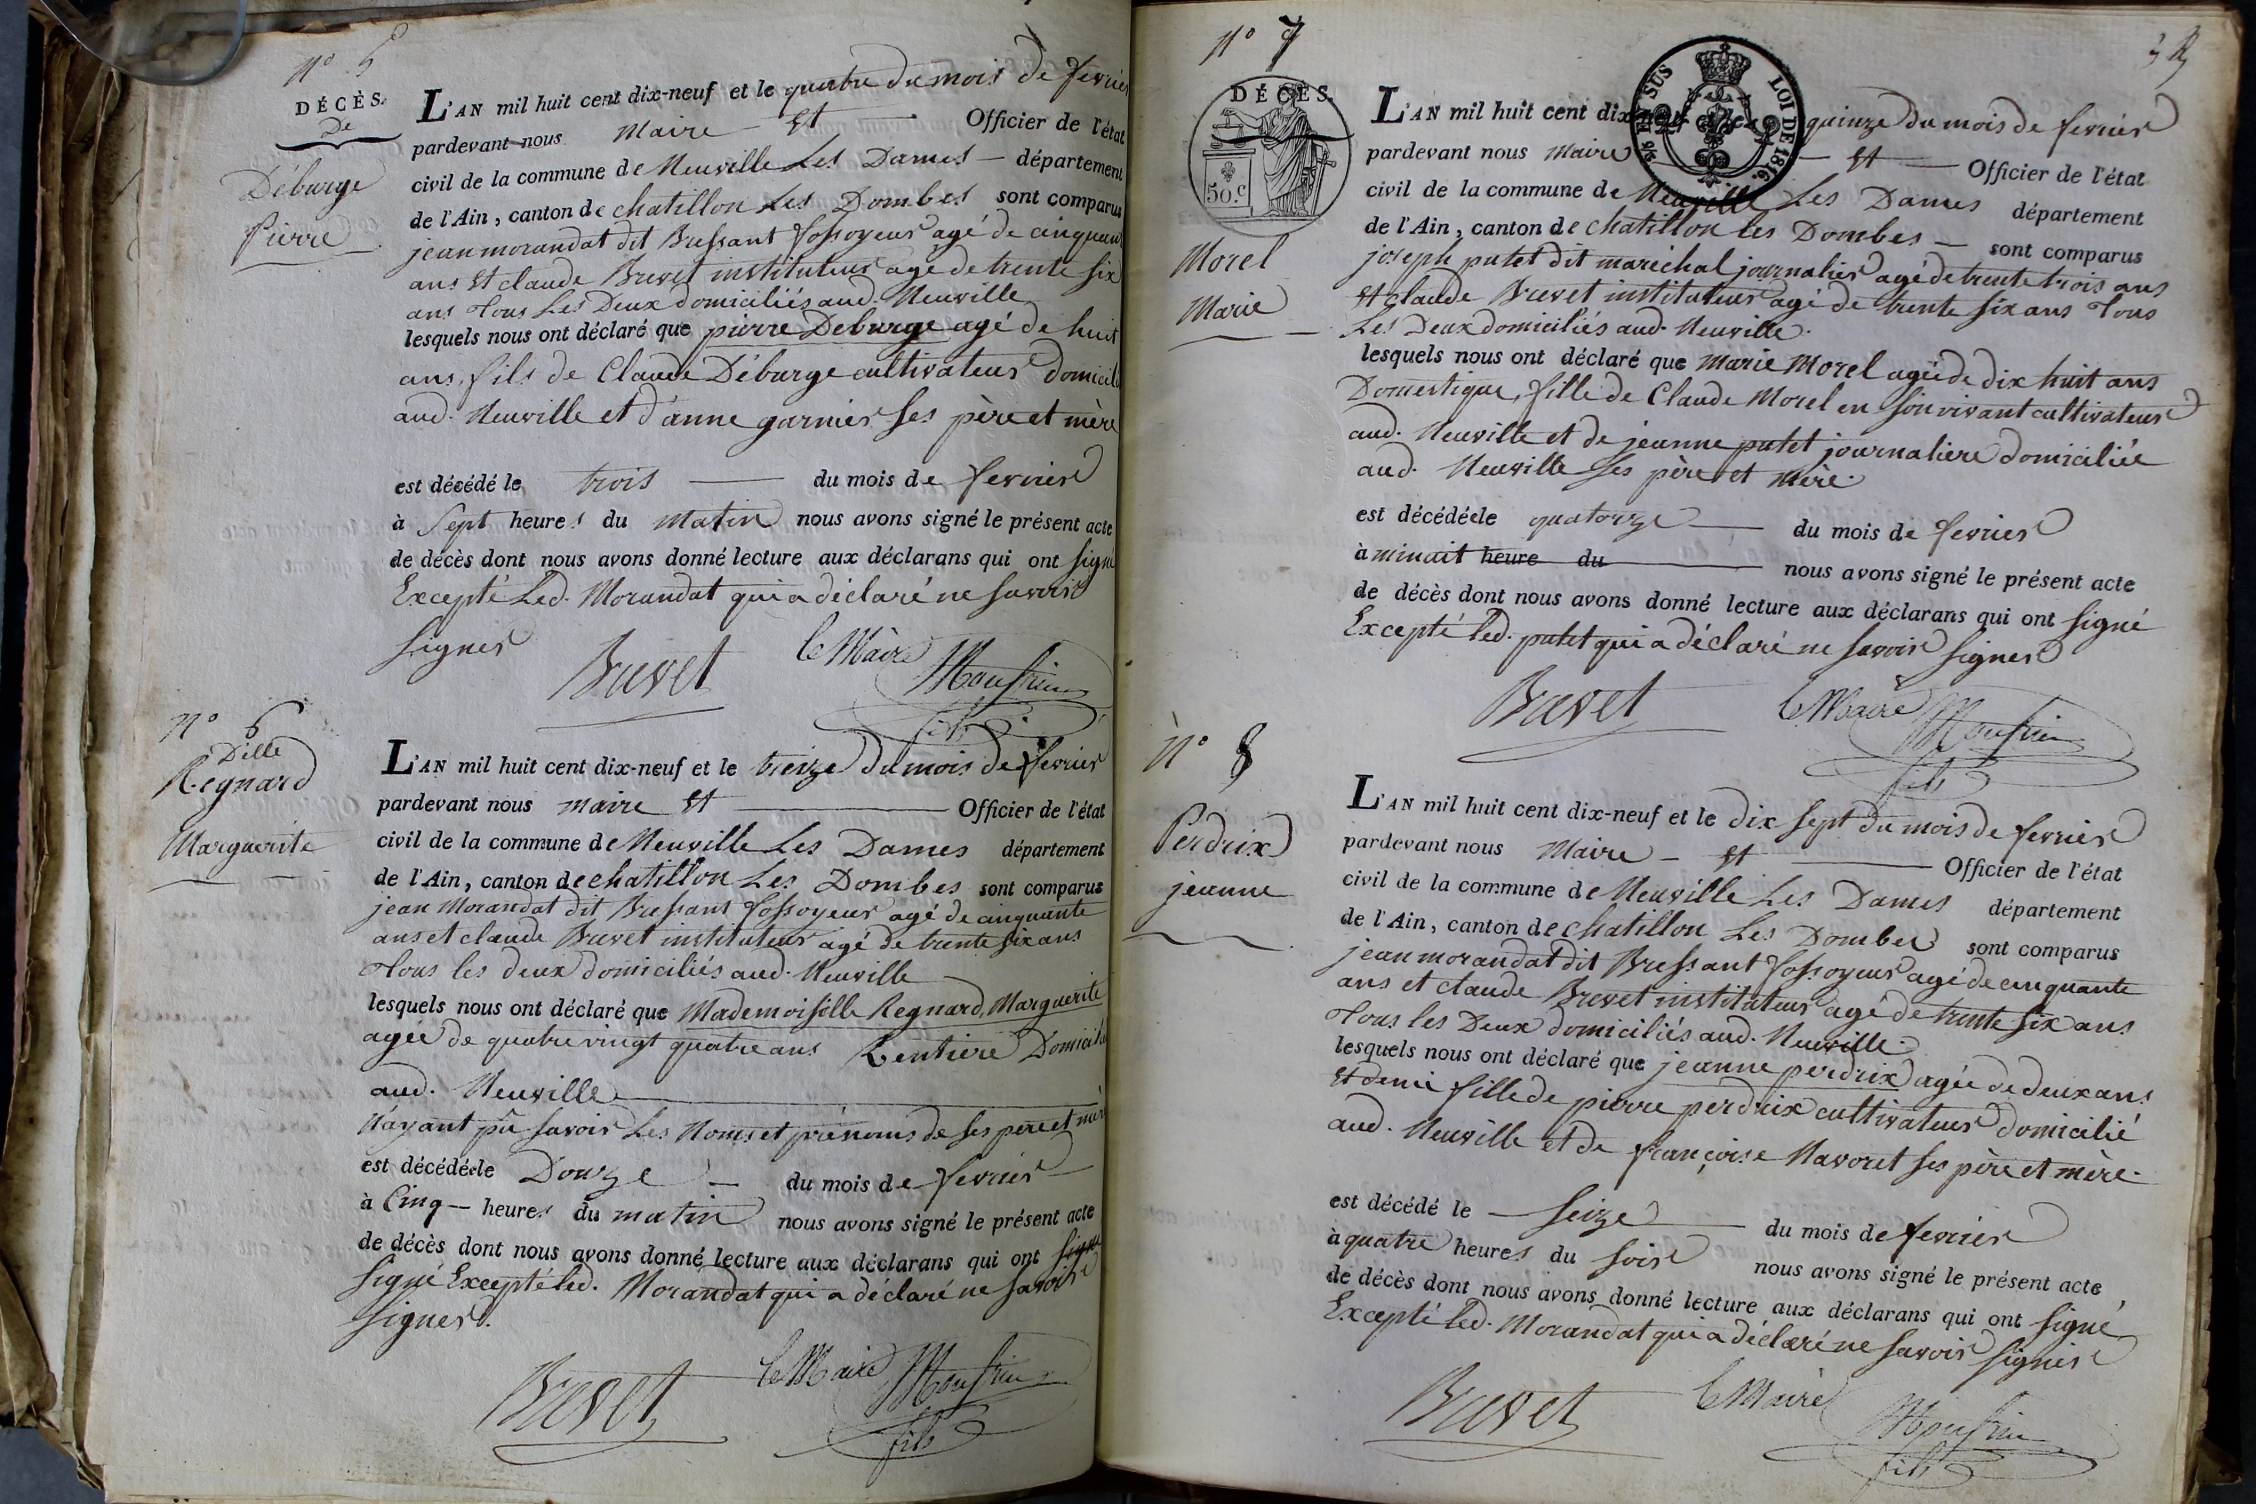 N° 5
DÉCÈS.
De
Déburge
pierre
L'AN mil huit cent dix-neuf et le quatre du mois de fevrier
pardevant nous Maire et Officier de l'état
civil de la commune de Neuville Les Dames département
de l'Ain, canton de chatillon Les Dombes sont comparus
jean morandat dit Bressant fossoyeur agé de cinquante
ans et claude Brevet instituteur agé de trente six
ans Tous Les Deux domiciliés aud. Neuville
lesquels nous ont déclaré que pierre Deburge agé de huit
ans, fils de Claude Déburge cultivateur domicilié
aud. Neuville et d'anne garnier ses père et mère
est décédé le trois du mois de fevrier
à Sept heures du Matin nous avons signé le présent acte
de décès dont nous avons donné lecture aux déclarans qui ont signé
Excepté Led. Morandat qui a déclaré ne savoir
signer
Brevet le Maire
fils
N° 6
Dille
Regnard
Marguerite
L'AN mil huit cent dix-neuf et le treize du mois de fevrier
pardevant nous maire et Officier de l'état
civil de la commune de Neuville Les Dames département
de l'Ain, canton de chatillon Les Dombes sont comparus
jean Morandat dit Bressant fossoyeur agé de cinquante
ans et claude Brevet instituteur agé de trente six ans
Tous les deux domiciliés aud. Neuville
lesquels nous ont déclaré que Mademoiselle Regnard, Marguerite
agée de quatre vingt quatre ans Rentiere Domiciliée
aud. Neuville
N'ayant pû savoir Les Noms et prénoms de ses père et mère
est décédée le Douze du mois de fevrier
à Cinq heures du matin nous avons signé le présent acte
de décès dont nous avons donné lecture aux déclarans qui ont signé
signé Excepté led. Morandat qui a déclaré ne savoir
signer.
Brevet le Maire
fils
N° 7
DÉCÈS.
50 c.
EN SUS LOI DE 1816.
Morel
Marie
L'AN mil huit cent dix-neuf et le quinze du mois de fevrier
pardevant nous Maire et Officier de l'état
civil de la commune de Neuville Les Dames département
de l'Ain, canton de chatillon les Dombes sont comparus
joseph putet dit marechal journalier agé de trente trois ans
et claude Brevet instituteur agé de trente six ans Tous
Les Deux domiciliés aud. Neuville.
lesquels nous ont déclaré que Marie Morel agée de dix huit ans
Domestique, fille de Claude Morel en son vivant cultivateur
aud. Neuville et de jeanne putet journaliere domiciliée
aud. Neuville ses père et mère.
est décédée le quatorze du mois de fevrier
à minuit heure du nous avons signé le présent acte
de décès dont nous avons donné lecture aux déclarans qui ont signé
Excepté led. putet qui a déclaré ne savoir signer
Brevet le Maire
fils
N° 8
Perdrix
jeanne
L'AN mil huit cent dix-neuf et le dix sept du mois de fevrier
pardevant nous Maire et Officier de l'état
civil de la commune de Neuville Les Dames département
de l'Ain, canton de chatillon Les Dombes sont comparus
jean morandat dit Bressant fossoyeur agé de cinquante
ans et claude Brevet instituteur agé de trente six ans
Tous les Deux domiciliés aud. Neuville.
lesquels nous ont déclaré que jeanne perdrix agée de deux ans
et demi fille de pierre perdrix cultivateur domicilié
aud. Neuville et de françoise Navoret ses père et mère.
est décédé le seize du mois de fevrier
à quatre heures du soir nous avons signé le présent acte
de décès dont nous avons donné lecture aux déclarans qui ont signé
Excepté Led. Morandat qui a déclaré ne savoir signer
Brevet le Maire
fils